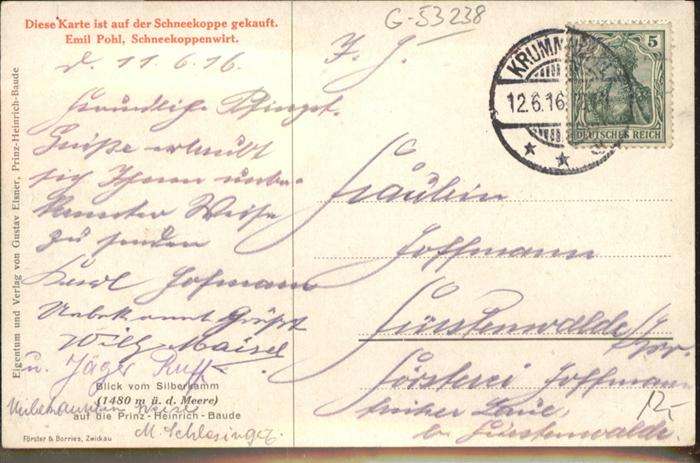 Diese Karte ist auf der Schneekoppe gekauft.
Emil Pohl, Schneekoppenwirt.
d. 11.6.16.
Freundliche Pfingst-
Grüße erlaubt
sich Ihnen unbe-
kannter Weise
zu senden
Karl Hofmann
Unbekannt Grüßt
Wilh. Maisel
u. Jäger Ruff
Blick vom Silberkamm
(1480 m ü. d. Meere)
auf die Prinz-Heinrich-Baude
Unbekannter Weise
M. Schlesinger
Förster & Borries, Zwickau
Eigentum und Verlag von Gustav Elsner, Prinz-Heinrich-Baude
G-53238
KRUMM
12.6.16
5
DEUTSCHES REICH
Fräulein
Hoffmann
Fürstenwalde
Försterei Hoffmann
früher
b. Fürstenwalde
12,-